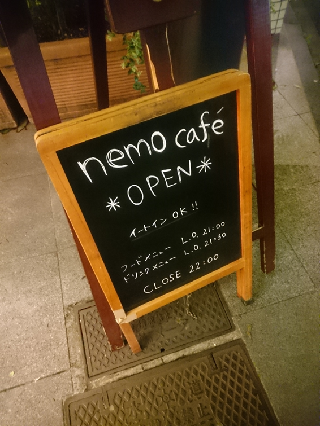 nemo café
*OPEN*
イートイン OK!!
フードメニュー L.O. 21:00
ドリンクメニュー L.O. 21:30
CLOSE 22:00